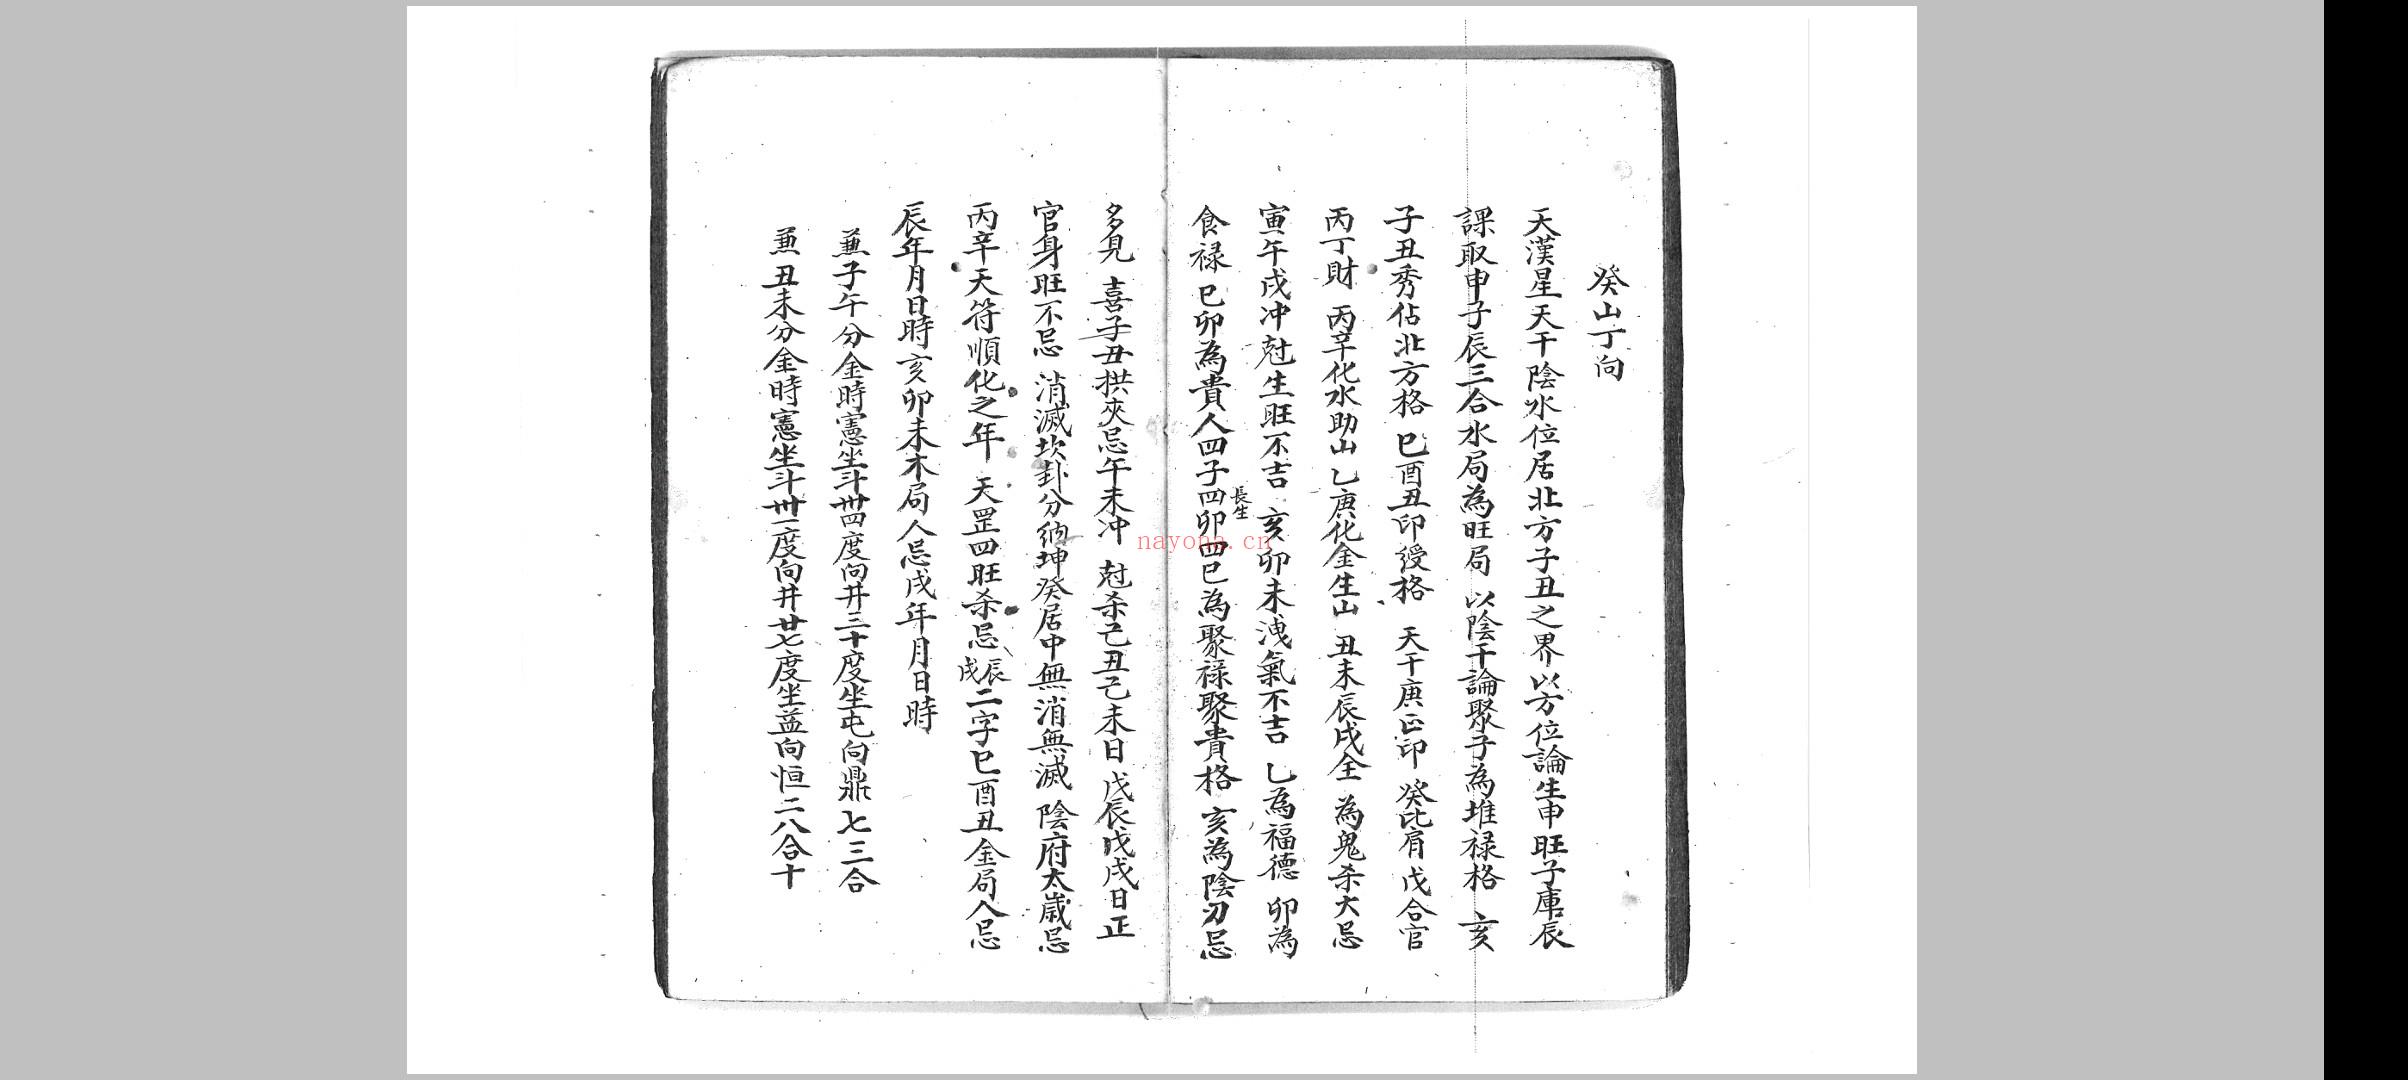 癸山丁向
天漢星天干陰水位居北方子丑之界以方位論生申旺子庫辰
課取申子辰三合水局為旺局 以陰干論聚子為堆祿格 亥
子丑秀佔北方格 巳酉丑印綬格 天干庚正印 癸比肩 戊合官
丙丁財 丙辛化水助山 乙庚化金生山 丑未辰戌全 為鬼杀大忌
寅午戌冲尅生旺不吉 亥卯未洩氣不吉 乙為福德 卯為
長生
食祿 巳卯為貴人四子四卯四巳為聚祿聚貴格 亥為陰刃忌
多見 喜子丑拱夾忌午未冲 尅杀己丑己未日 戊辰戊戌日正
官身旺不忌 消滅坎卦分納坤癸居中無消無滅 陰府太歲忌
丙辛天符順化之年 天罡四旺杀忌辰戌二字巳酉丑金局人忌
辰年月日時亥卯未木局人忌戌年月日時
兼子午分金時憲坐斗卅四度向井三十度坐屯向鼎七三合
兼丑未分金時憲坐斗卅一度向井廿七度坐益向恒二八合十
nayona.cn